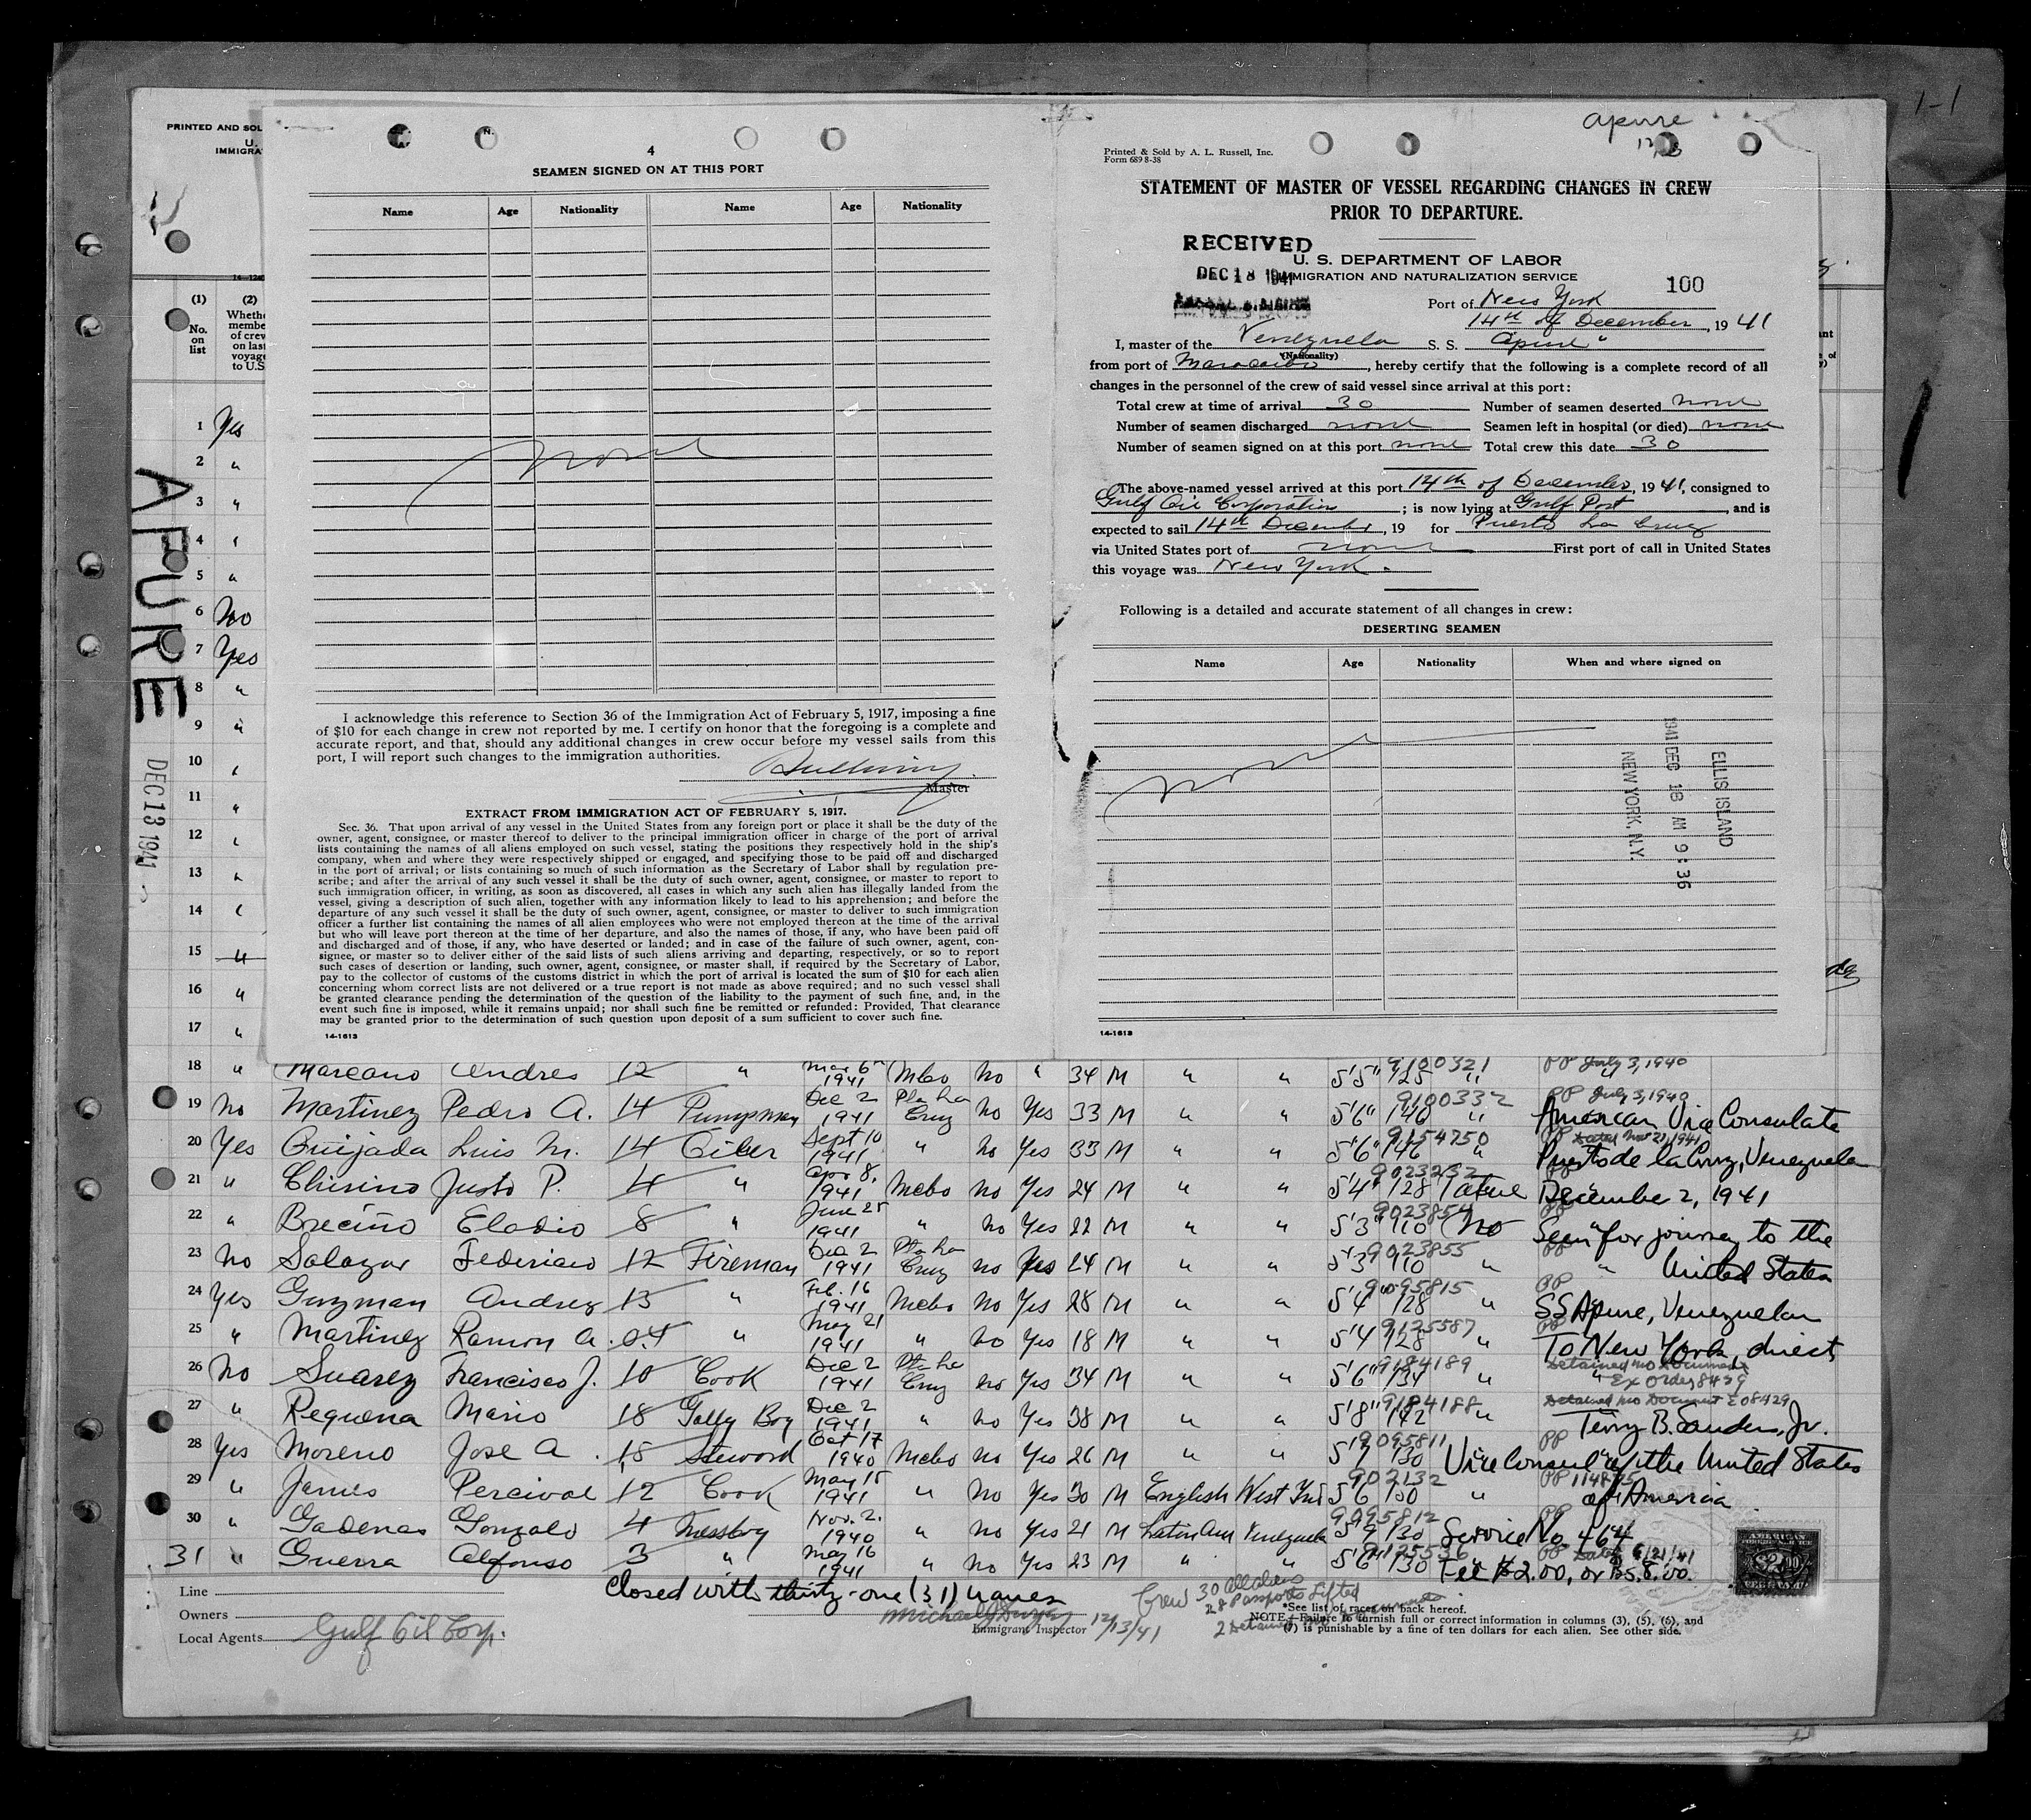 1-1
PRINTED AND SOL
U.
IMMIGRA
(1)
No.
on
list
(2)
Wheth
membe
of crew
on last
voyage
to U.S
1 Yes
2 "
3 "
4 "
5 "
6 No
7 Yes
8 "
9 "
10 "
11 "
12 "
13 "
14 "
15 "
16 "
17 "
APURE
DEC 13 1941
4
SEAMEN SIGNED ON AT THIS PORT
Name Age Nationality Name Age Nationality
None
I acknowledge this reference to Section 36 of the Immigration Act of February 5, 1917, imposing a fine
of $10 for each change in crew not reported by me. I certify on honor that the foregoing is a complete and
accurate report, and that, should any additional changes in crew occur before my vessel sails from this
port, I will report such changes to the immigration authorities.
Master
EXTRACT FROM IMMIGRATION ACT OF FEBRUARY 5, 1917.
Sec. 36. That upon arrival of any vessel in the United States from any foreign port or place it shall be the duty of the
owner, agent, consignee, or master thereof to deliver to the principal immigration officer in charge of the port of arrival
lists containing the names of all aliens employed on such vessel, stating the positions they respectively hold in the ship's
company, when and where they were respectively shipped or engaged, and specifying those to be paid off and discharged
in the port of arrival; or lists containing so much of such information as the Secretary of Labor shall by regulation pre-
scribe; and after the arrival of any such vessel it shall be the duty of such owner, agent, consignee, or master to report to
such immigration officer, in writing, as soon as discovered, all cases in which any such alien has illegally landed from the
vessel, giving a description of such alien, together with any information likely to lead to his apprehension; and before the
departure of any such vessel it shall be the duty of such owner, agent, consignee, or master to deliver to such immigration
officer a further list containing the names of all alien employees who were not employed thereon at the time of the arrival
but who will leave port thereon at the time of her departure, and also the names of those, if any, who have been paid off
and discharged and of those, if any, who have deserted or landed; and in case of the failure of such owner, agent, con-
signee, or master so to deliver either of the said lists of such aliens arriving and departing, respectively, or so to report
such cases of desertion or landing, such owner, agent, consignee, or master shall, if required by the Secretary of Labor,
pay to the collector of customs of the customs district in which the port of arrival is located the sum of $10 for each alien
concerning whom correct lists are not delivered or a true report is not made as above required; and no such vessel shall
be granted clearance pending the determination of the question of the liability to the payment of such fine, and, in the
event such fine is imposed, while it remains unpaid; nor shall such fine be remitted or refunded: Provided, That clearance
may be granted prior to the determination of such question upon deposit of a sum sufficient to cover such fine.
14-1613
apure
Printed & Sold by A. L. Russell, Inc.
Form 689 8-38
STATEMENT OF MASTER OF VESSEL REGARDING CHANGES IN CREW
PRIOR TO DEPARTURE.
RECEIVED
DEC 18 1941
U. S. DEPARTMENT OF LABOR
IMMIGRATION AND NATURALIZATION SERVICE
100
Port of New York
14th of December, 19 41
I, master of the Venezuela S. S. Apure"
(Nationality)
from port of Maracaibo, hereby certify that the following is a complete record of all
changes in the personnel of the crew of said vessel since arrival at this port:
Total crew at time of arrival 30 Number of seamen deserted none
Number of seamen discharged none Seamen left in hospital (or died) none
Number of seamen signed on at this port none Total crew this date 30
The above-named vessel arrived at this port 14th of December, 19 41, consigned to
Gulf Oil Corporation; is now lying at Gulf Port, and is
expected to sail 14th December, 19 for Puerto La Cruz
via United States port of none First port of call in United States
this voyage was New York.
Following is a detailed and accurate statement of all changes in crew:
DESERTING SEAMEN
Name Age Nationality When and where signed on
None
ELLIS ISLAND
1941 DEC 18 AM 9:36
NEW YORK, N.Y.
14-1613
18 " Marcano Andres 12 " Mar 6 1941 Mbo No " 34 M " " 5'5" 125 " 9100321 PP July 3, 1940
19 No Martinez Pedro A. 14 Pumpman Dec 2 1941 Pta La Cruz No Yes 33 M " " 5'6" 140 " 9100332 PP July 3, 1940
American Vice Consulate
20 Yes Quijada Luis M. 14 Oiler Sept 10 1941 " No Yes 33 M " " 5'6" 146 " 9154750 PP Dated Nov 21, 1941
Puerto de la Cruz, Venezuela
21 " Chirino Justo P. 4 " Apr 8, 1941 Mcbo no Yes 24 M " " 5'4" 128 9023232 PP
December 2, 1941
22 " Breciño Eladio 8 " June 25 1941 " No Yes 22 M " " 5'3" 110 No 9023854 PP
Seen for journey to the
23 No Salazar Federico 12 Fireman Dec 2 1941 Pta La Cruz no Yes 24 M " " 5'3" 110 " 9023855 PP
United States
24 Yes Guzman Andrez 13 " Feb. 16 1941 Mcbo No Yes 28 M " " 5'4 128 " 9095815 PP
SS Apure, Venezuelan
25 " Martinez Ramon A. 04 " May 21 1941 " no Yes 18 M " " 5'4 128 " 9125587 PP
To New York, direct
26 No Suarez Francisco J. 10 Cook Dec 2 1941 Pta La Cruz no Yes 34 M " " 5'6" 134 " 9184189 Detained no Document
" Ex Order 8429
27 " Requena Mario 18 Gally Boy Dec 2 1941 " no Yes 38 M " " 5'8" 142 " 9184188 Detained no Document EO8429
Terry B. Sanders, Jr.
28 Yes Moreno Jose A. 15 Steward Oct 17 1940 Mcbo no Yes 26 M " " 5'7 130 9095811 PP
Vice Consul of the United States
29 " James Percival 12 Cook May 15 1941 " No Yes 30 M English West Ind 5'6 150 " 902132 PP
of America
30 " Gadenas Gonzalo 4 Messboy Nov. 2. 1940 " no Yes 21 M Latin Am Venezuela 5'9 130 9095812 PP
Service No. 464
31 " Guerra Alfonso 3 " May 16 1941 " No Yes 23 M " " 5'6" 130 9125536 PP Dated 6/21/41
Fee $2.00, or Bs 8.00.
AMERICAN
FOREIGN SERVICE
$2.00
Line
Closed with thirty-one (31) names
Owners
Local Agents Gulf Oil Corp.
Immigrant Inspector 12/13/41
Crew 30 all aliens
28 Passports lifted
2 Detained no documents
*See list of races on back hereof.
NOTE.—Failure to furnish full or correct information in columns (3), (5), (6), and
(7) is punishable by a fine of ten dollars for each alien. See other side.